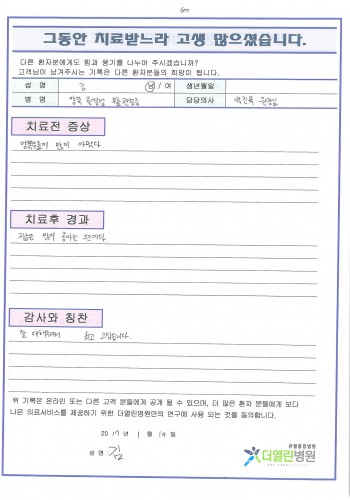 그동안 치료받느라 고생 많으셨습니다.
다른 환자분에게도 힘과 용기를 나누어 주시겠습니까?
고객님이 남겨주시는 기록은 다른 환자분들의 희망이 됩니다.
성 명 김 남 / 여 생년월일
병 명 양쪽 퇴행성 담당의사 원장님
치료전 증상
양쪽무릎이 많이 아팠다.
치료후 경과
지금은 많이 좋아진 편이다.
감사와 칭찬
잘 해주셔서 고맙습니다.
위 기록은 온라인 또는 다른 고객 분들에게 공개 될 수 있으며, 더 많은 환자 분들에게 보다
나은 의료서비스를 제공하기 위한 더열린병원만의 연구에 사용 되는 것을 동의합니다.
2017년 1월 일
성 명 : 김
관절중점병원
더열린병원